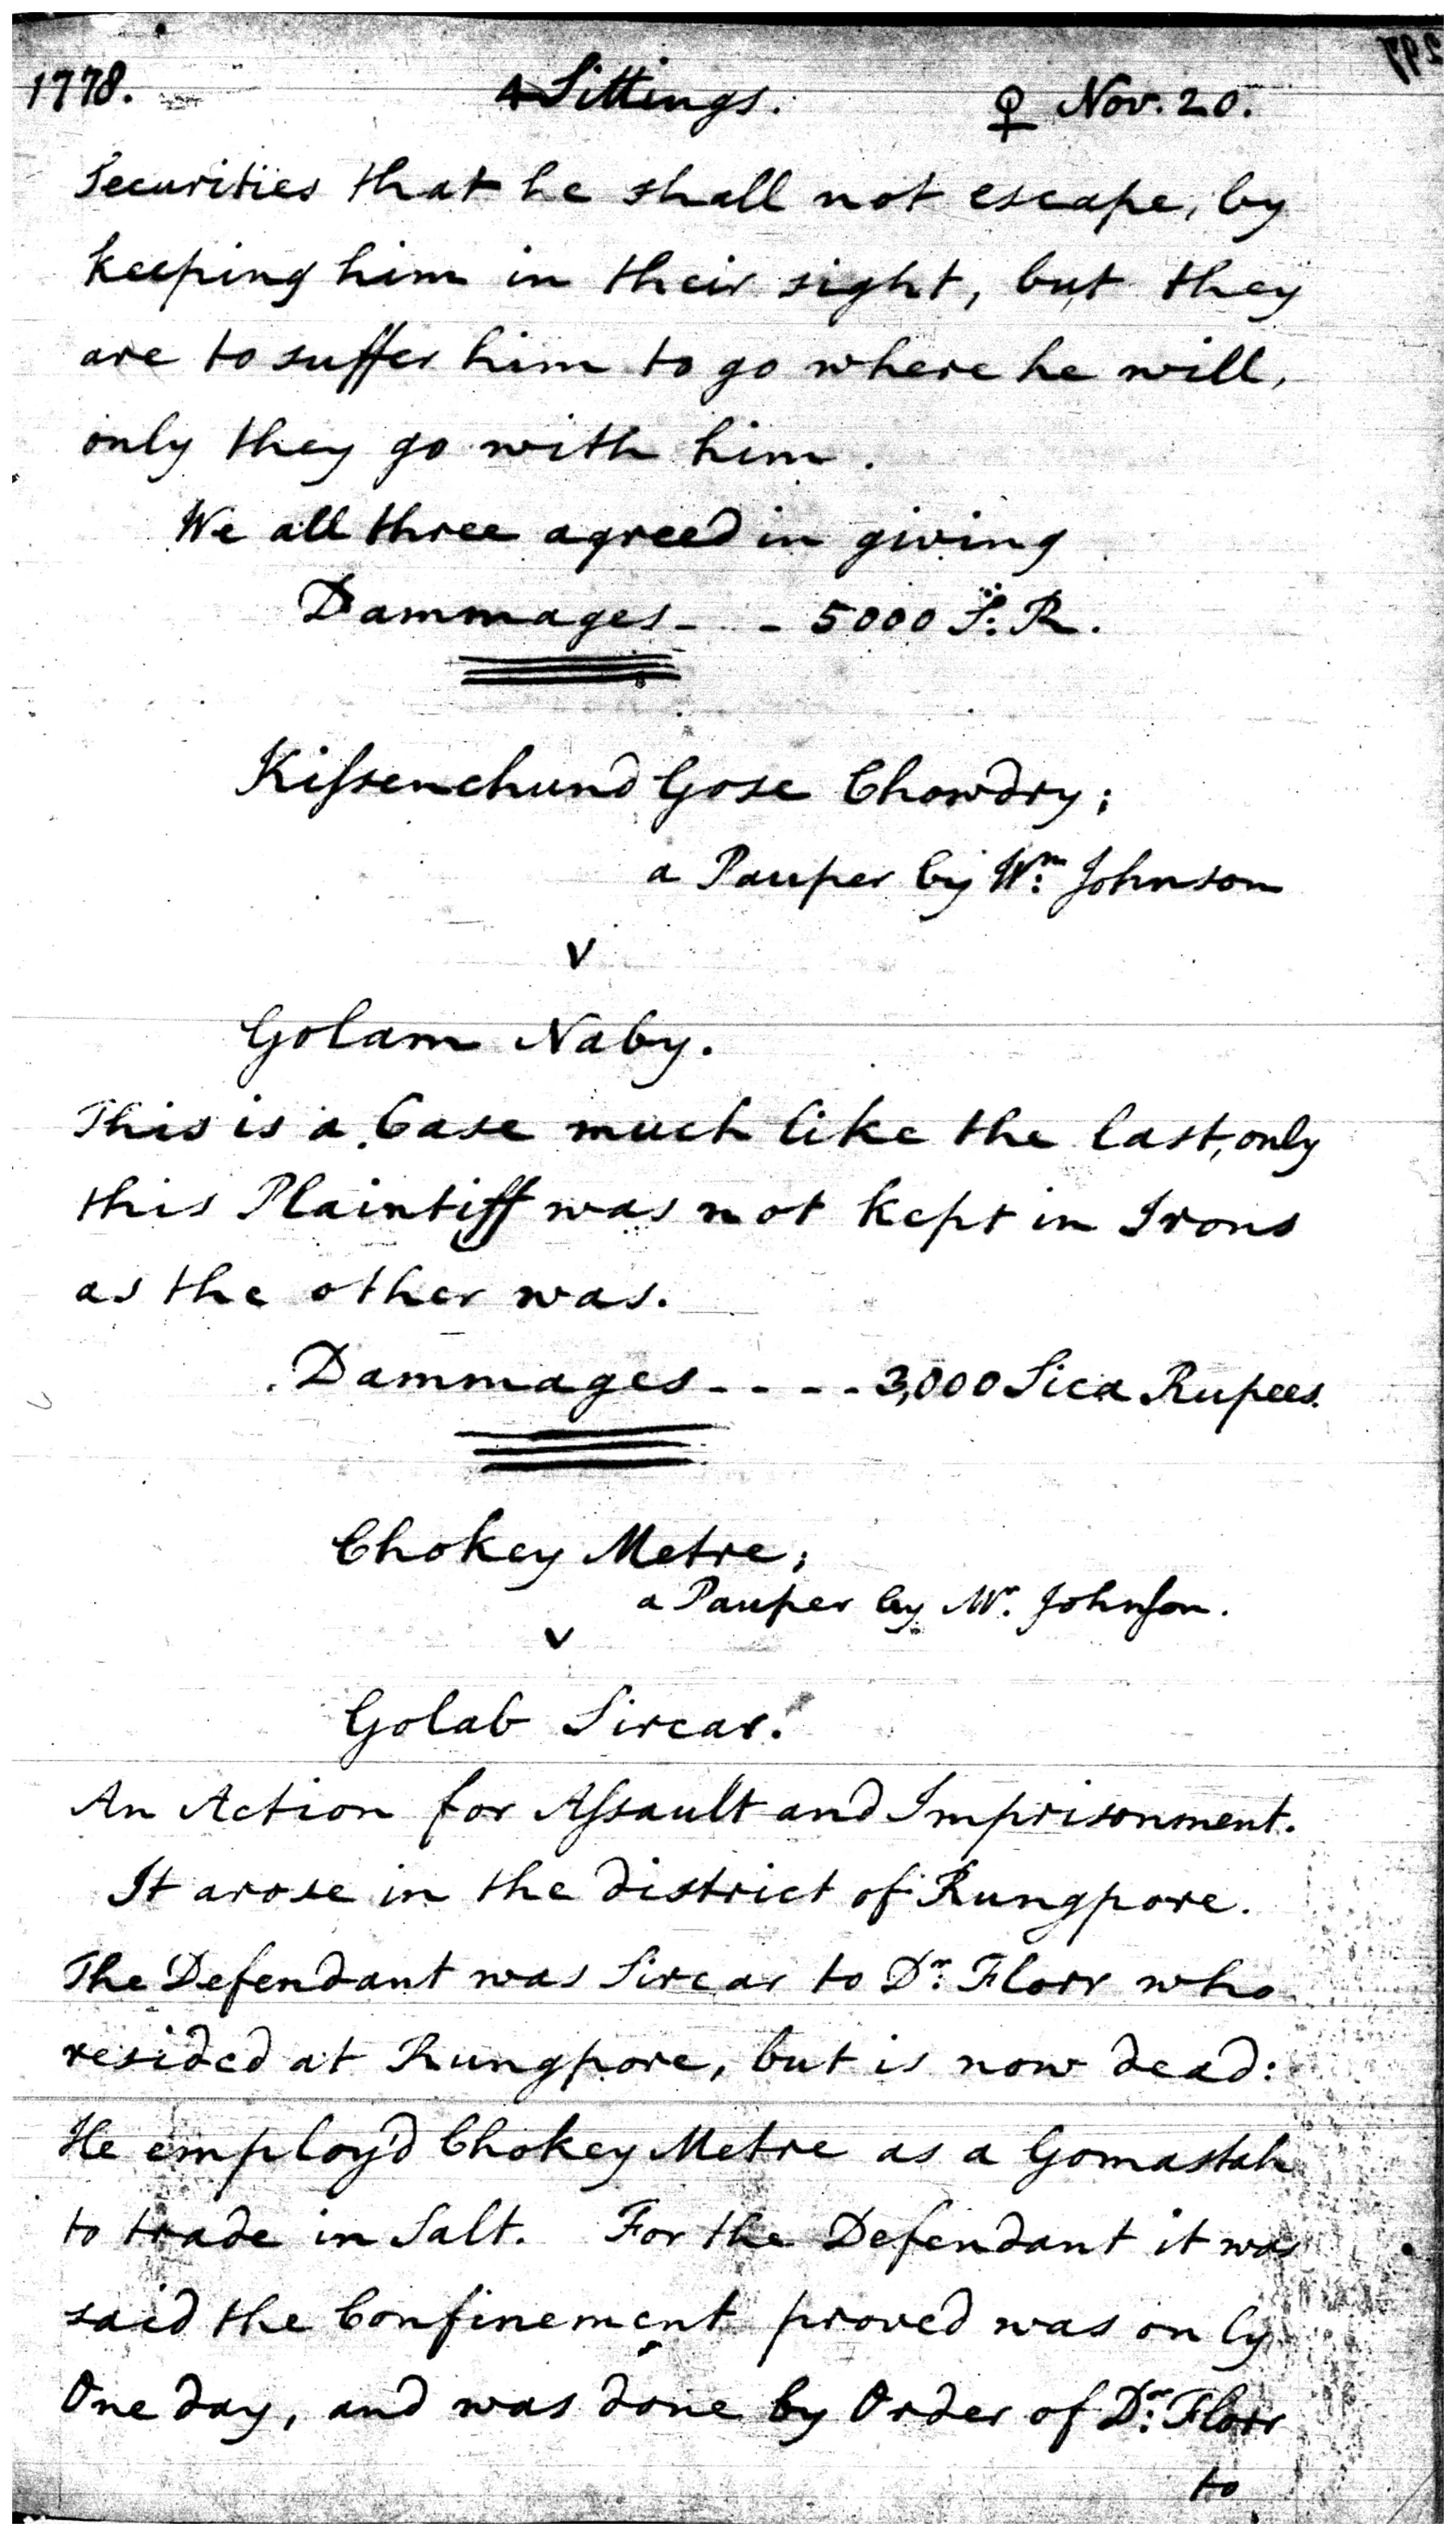 1778. 4 Sittings. ♀ Nov. 20.
Securities that he shall not escape, by
keeping him in their sight, but they
are to suffer him to go where he will,
only they go with him.
We all three agreed in giving
Dammages - - 5000 S: R.
Kiſsenchund Gose Chowdry;
a Pauper by Wm: Johnson
v
Golam Naby.
This is a Case much like the last, only
this Plaintiff was not kept in Irons
as the other was.
Dammages - - - - 3,000 Sica Rupees.
Chokey Metre;
a Pauper by Mr. Johnſon.
v
Golab Sircar.
An Action for Aſsault and Imprisonment.
It arose in the district of Rungpore.
The Defendant was Sircar to Dr: Florr who
resided at Rungpore, but is now dead:
He employ'd Chokey Metre as a Gomastah
to trade in Salt. For the Defendant it was
said the Confinement proved was only
One day, and was done by Order of Dr: Florr
to